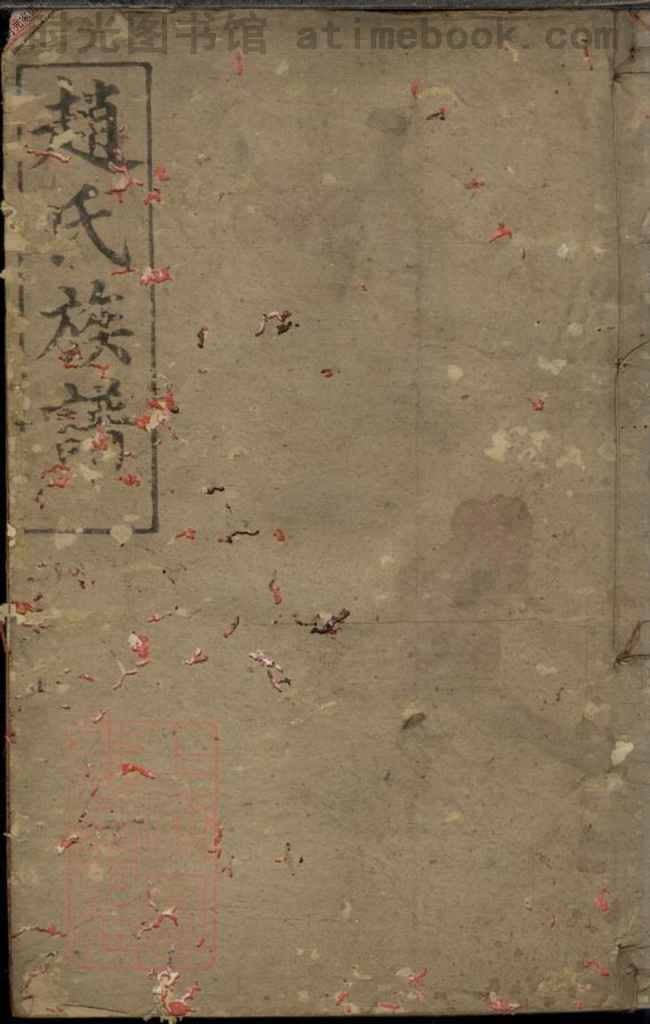 时光图书馆 atimebook.com
趙氏族譜